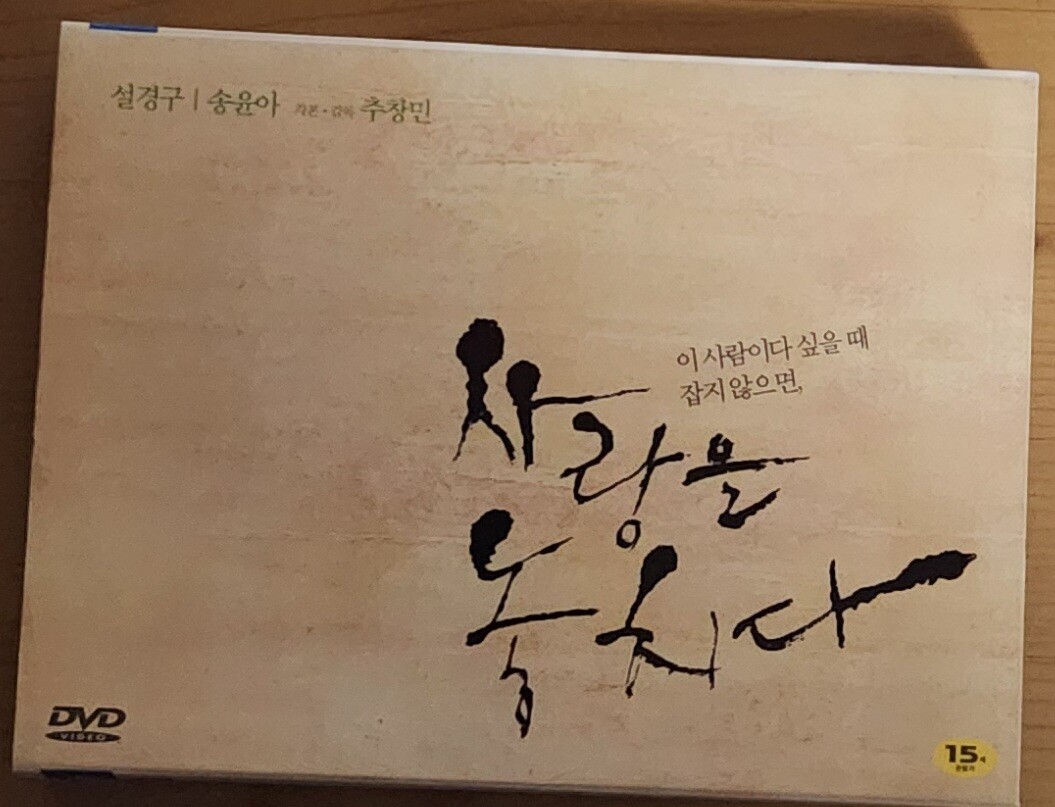 설경구 | 송윤아 각본·감독 추창민
이 사람이다 싶을 때
잡지 않으면,
사랑을
놓치다
DVD
VIDEO
15세
관람가